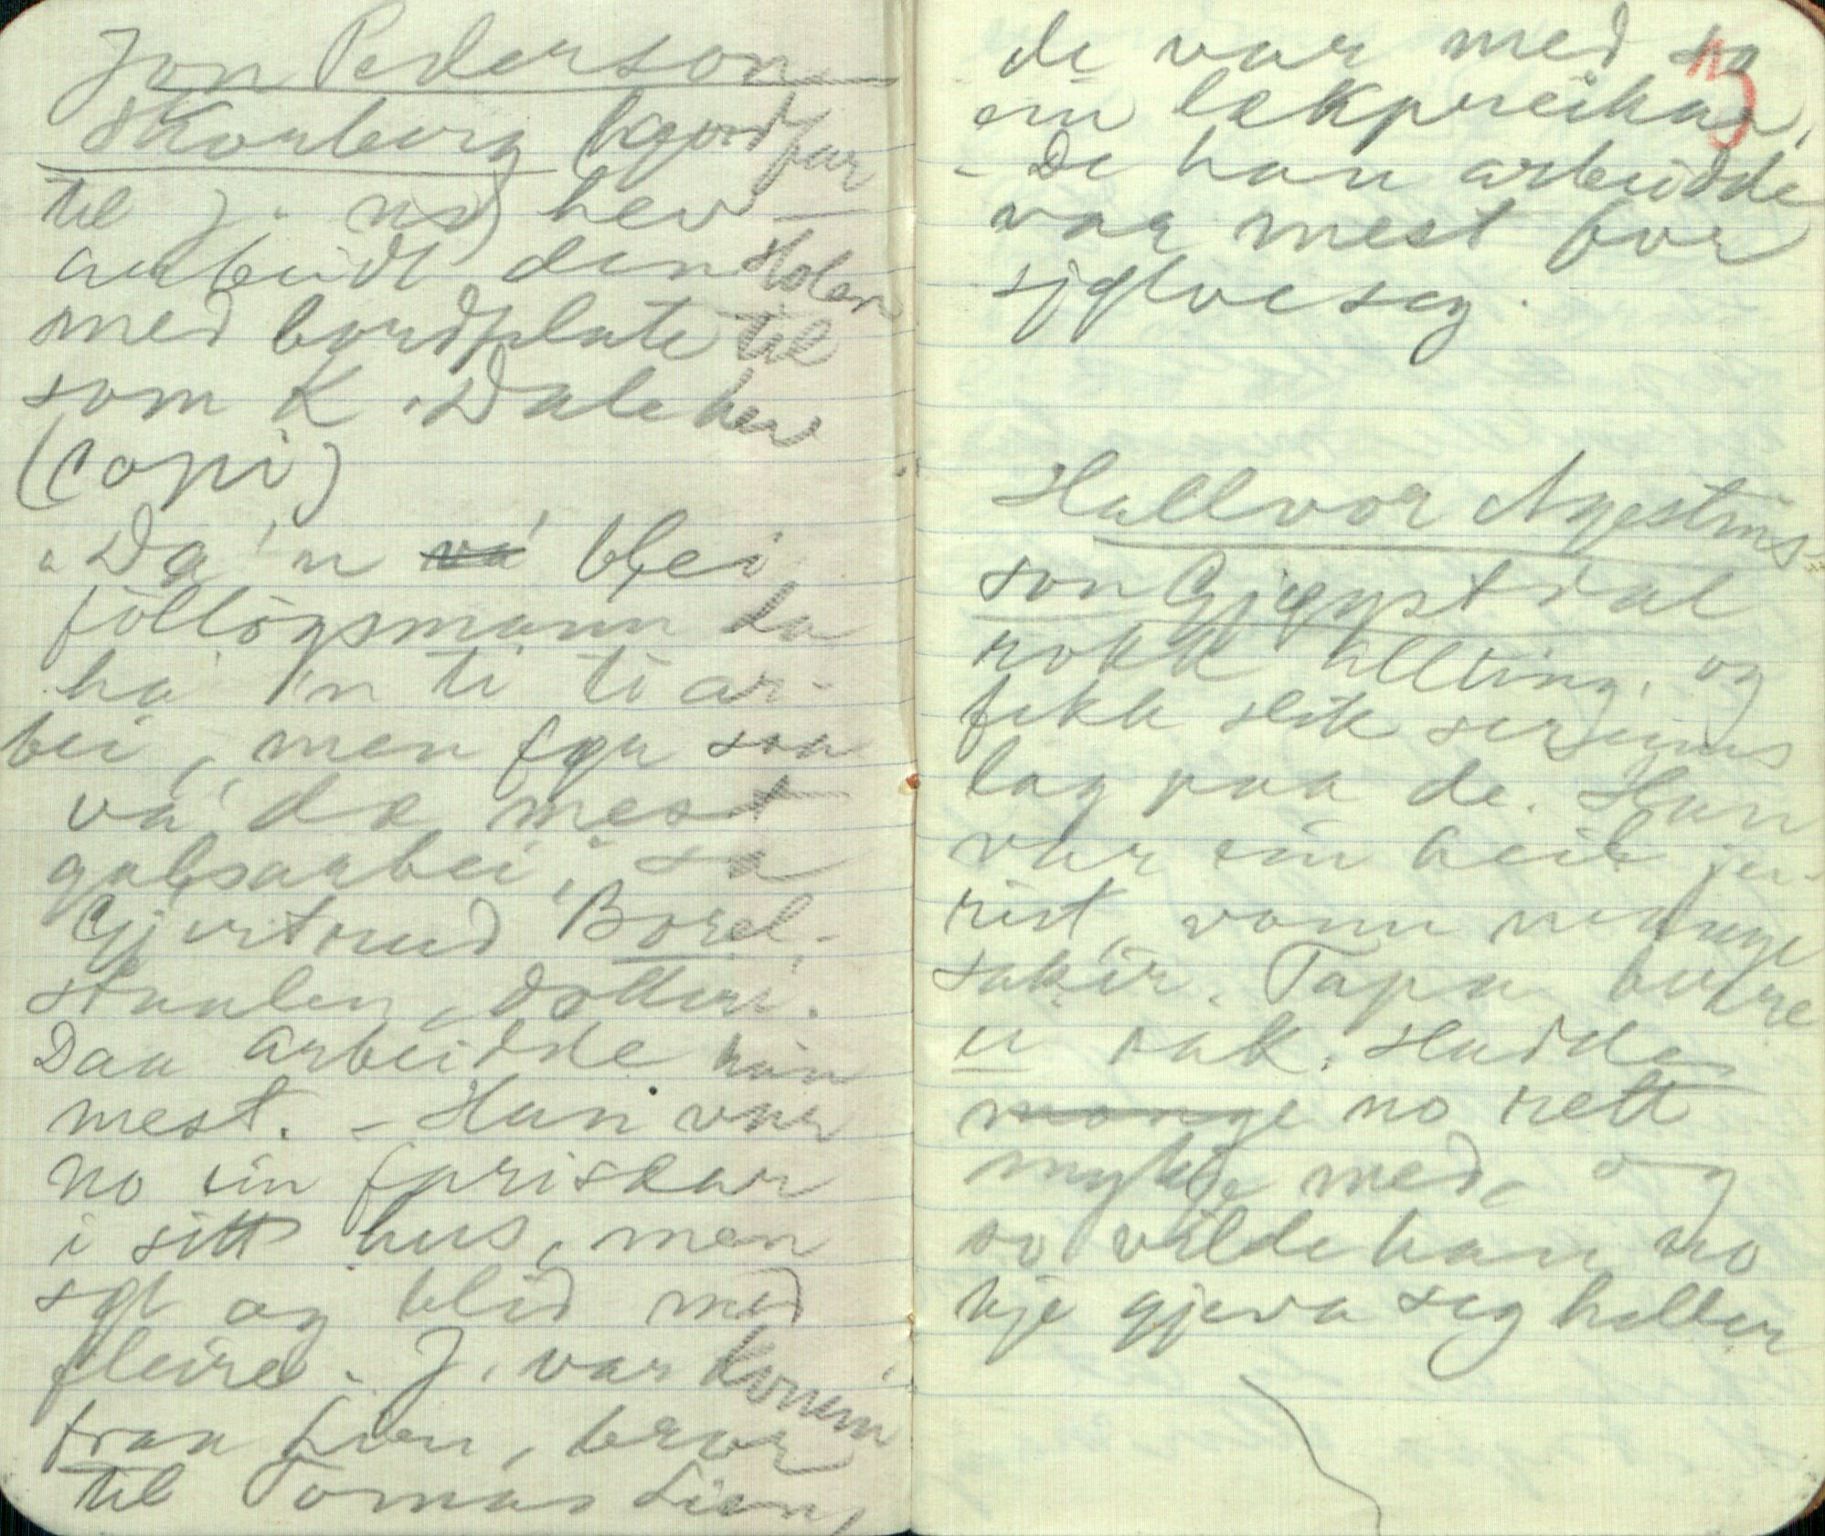 Jon Pederson
Skorberg (bgordfar
til J. no) hev
arbeidt den stolen
med bordplate til
som K. Dale hev
(Copi)
"Da 'n vá blei
föllögsmann da
ha 'n ti ti ar-
bei, men fyr soa
va' da mest
galsaarbei", sa
Gjertrud Borel-
staulen, dotteri.
Daa arbeidde han
mest. - Han var
no ein friskar
i sitt hus, men
sæl og blid med
fleire. J. var komen
fraa Lien, bror
til Tomas Lien,
de var med so
ein lekpreikar,
- De han arbeidde
var mest for
sjølve seg.
13
Hallvor Ayestins-
son Gjøystdal
rokk allting, og
fekk slik serseinns
lag paa de. Han
var ein heil ju-
rist, vann mange
sakir. Tapa berre
ei sak. Hadde
mange no rett
mykje med, og
so vilde han no
kje gjeva seg heller